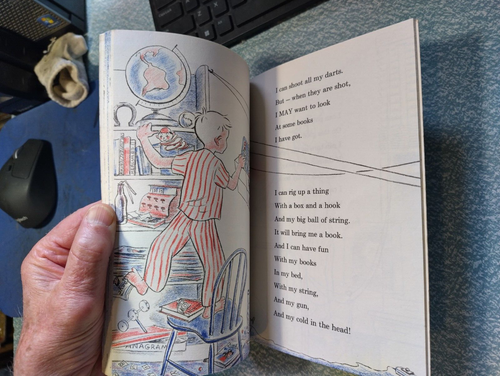 ANAGRAM
I can shoot all my darts.
But — when they are shot,
I MAY want to look
At some books
I have got.
I can rig up a thing
With a box and a hook
And my big ball of string.
It will bring me a book.
And I can have fun
With my books
In my bed,
With my string,
And my gun,
And my cold in the head!